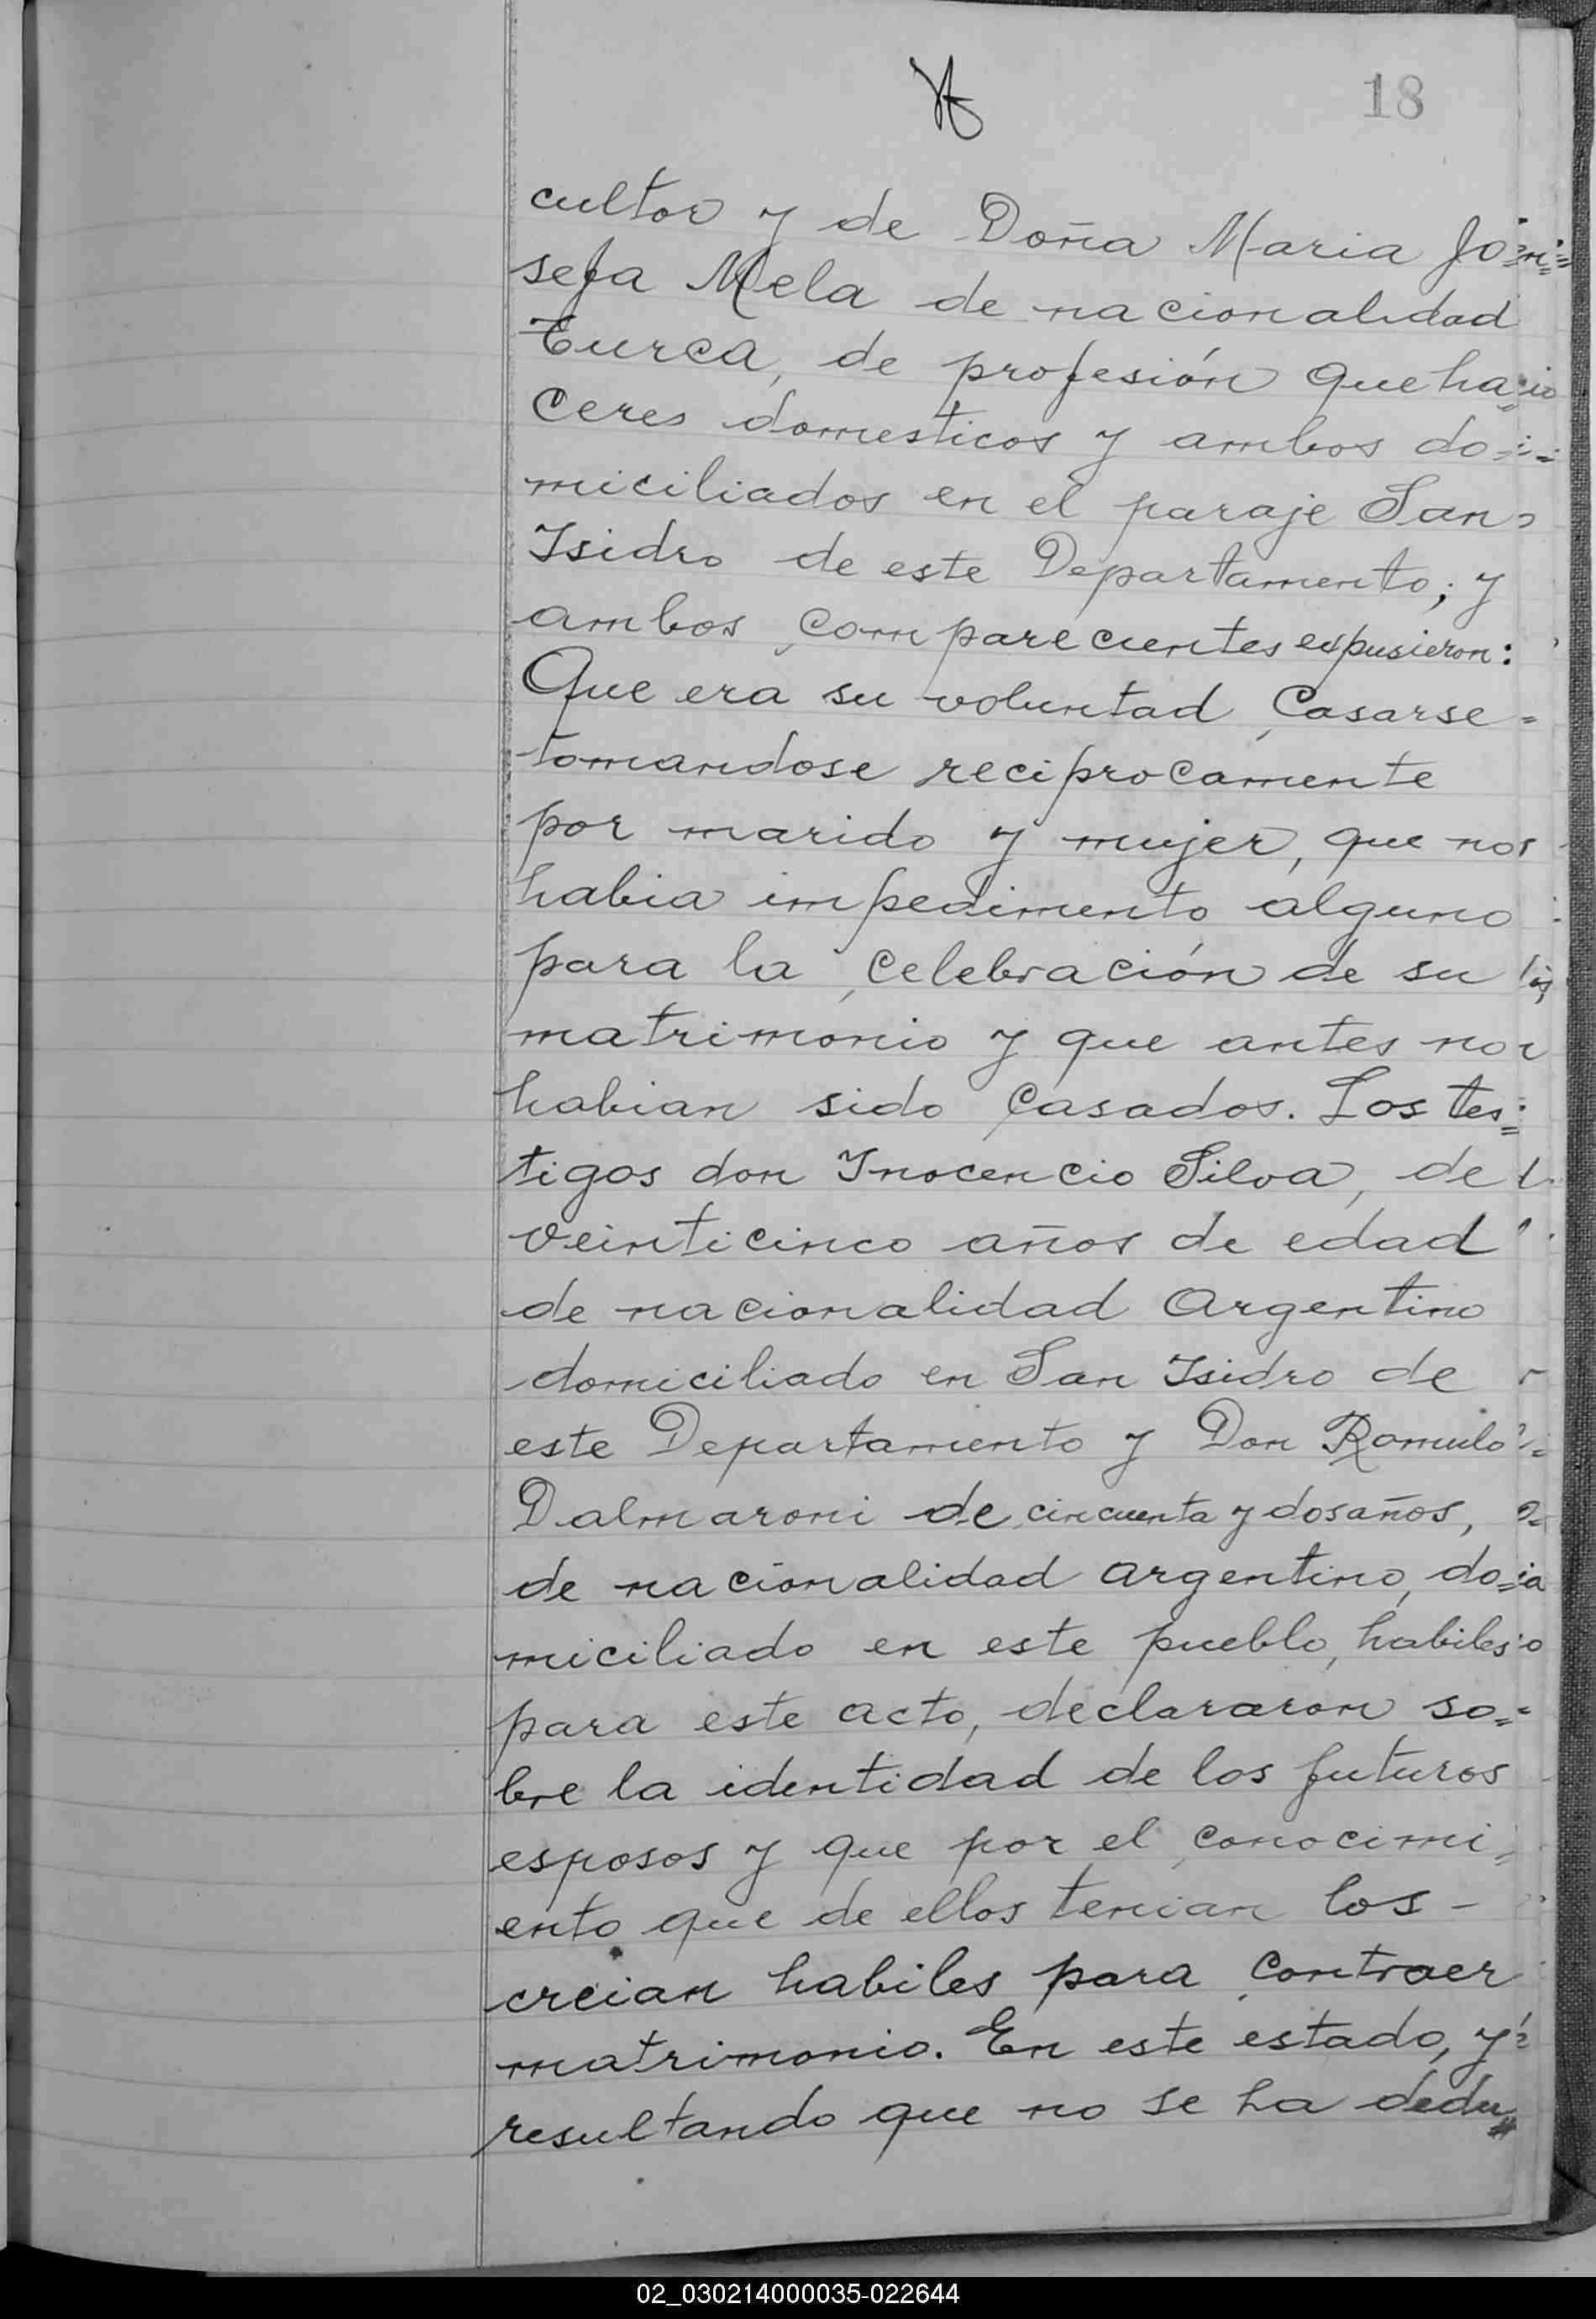 18
cultor y de Doña Maria Jo=
sefa Mela de nacionalidad
Turca, de profesión queha=
ceres domesticos y ambos do=
miciliados en el paraje San
Isidro de este Departamento; y
ambos comparecientes espusieron:
Que era su voluntad casarse=
tomandose reciprocamente
por marido y mujer, que no
habia impedimento alguno
para la celebración de su
matrimonio y que antes no
habian sido casados. Los tes=
tigos don Inocencio Silva, de
veinticinco años de edad
de nacionalidad argentino
domiciliado en San Isidro de
este Departamento y Don Romulo
Dalmaroni de cincuenta y dos años,
de nacionalidad argentino, do=
miciliado en este pueblo, habiles
para este acto, declararon so=
bre la identidad de los futuros
esposos y que por el conocimi=
ento que de ellos tenian los -
creian habiles para contraer
matrimonio. En este estado, y
resultando que no se ha dedu=
02_030214000035-022644